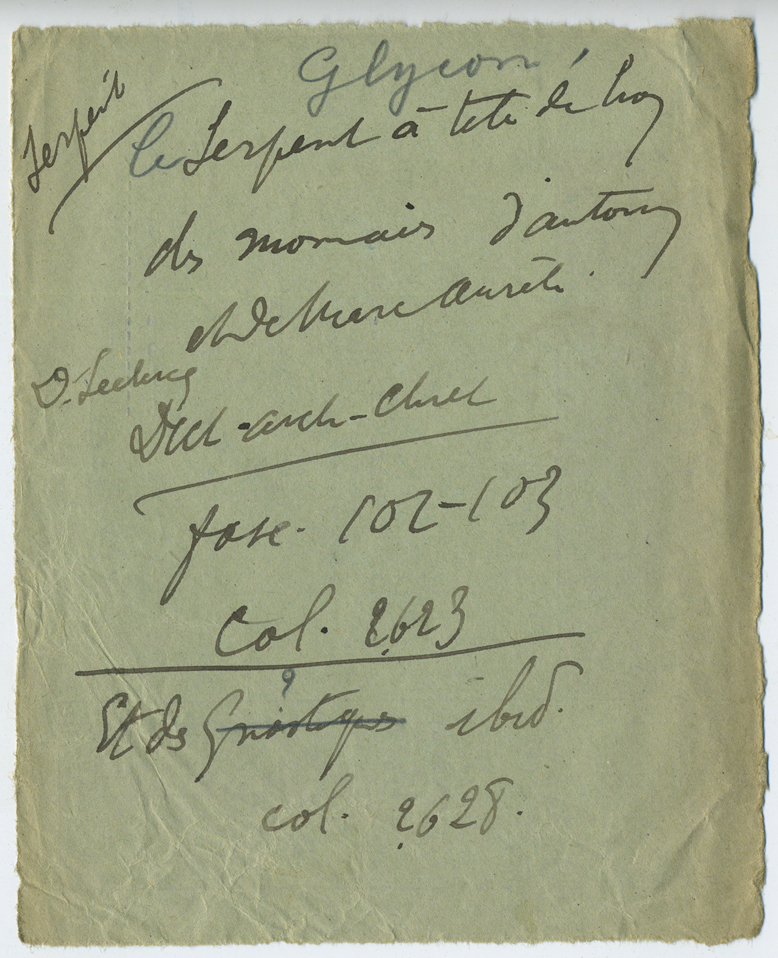 Glycon
Serpent
le Serpent à tête de lion
des monnaies d'antonin
et de Marc aurèle.
D. Leclercq
Dict-arch-chret
fasc. 102-103
Col. 2623
?
Et des Gnostiques ibid.
col. 2628.